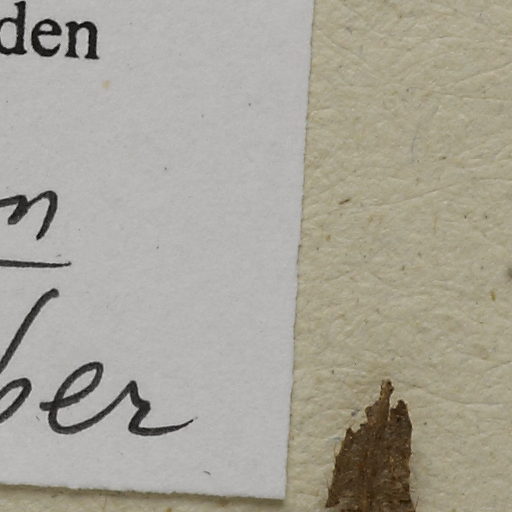 den
n
ber